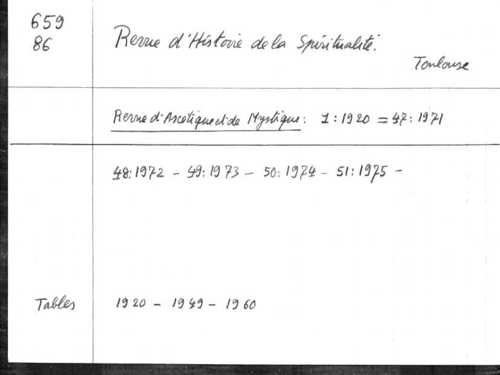 659
86
Revue d'Histoire de la Spiritualité.
Toulouse
Revue d'Ascétique et de Mystique : 1 : 1920 = 47 : 1971
48 : 1972 - 49 : 1973 - 50 : 1974 - 51 : 1975 -
Tables 1920 - 1949 - 1960